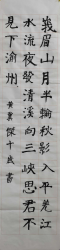 峨眉山月半輪秋影入平羌江
水流夜發清溪向三峽思君不
見下渝州
黃霽傑十歲書